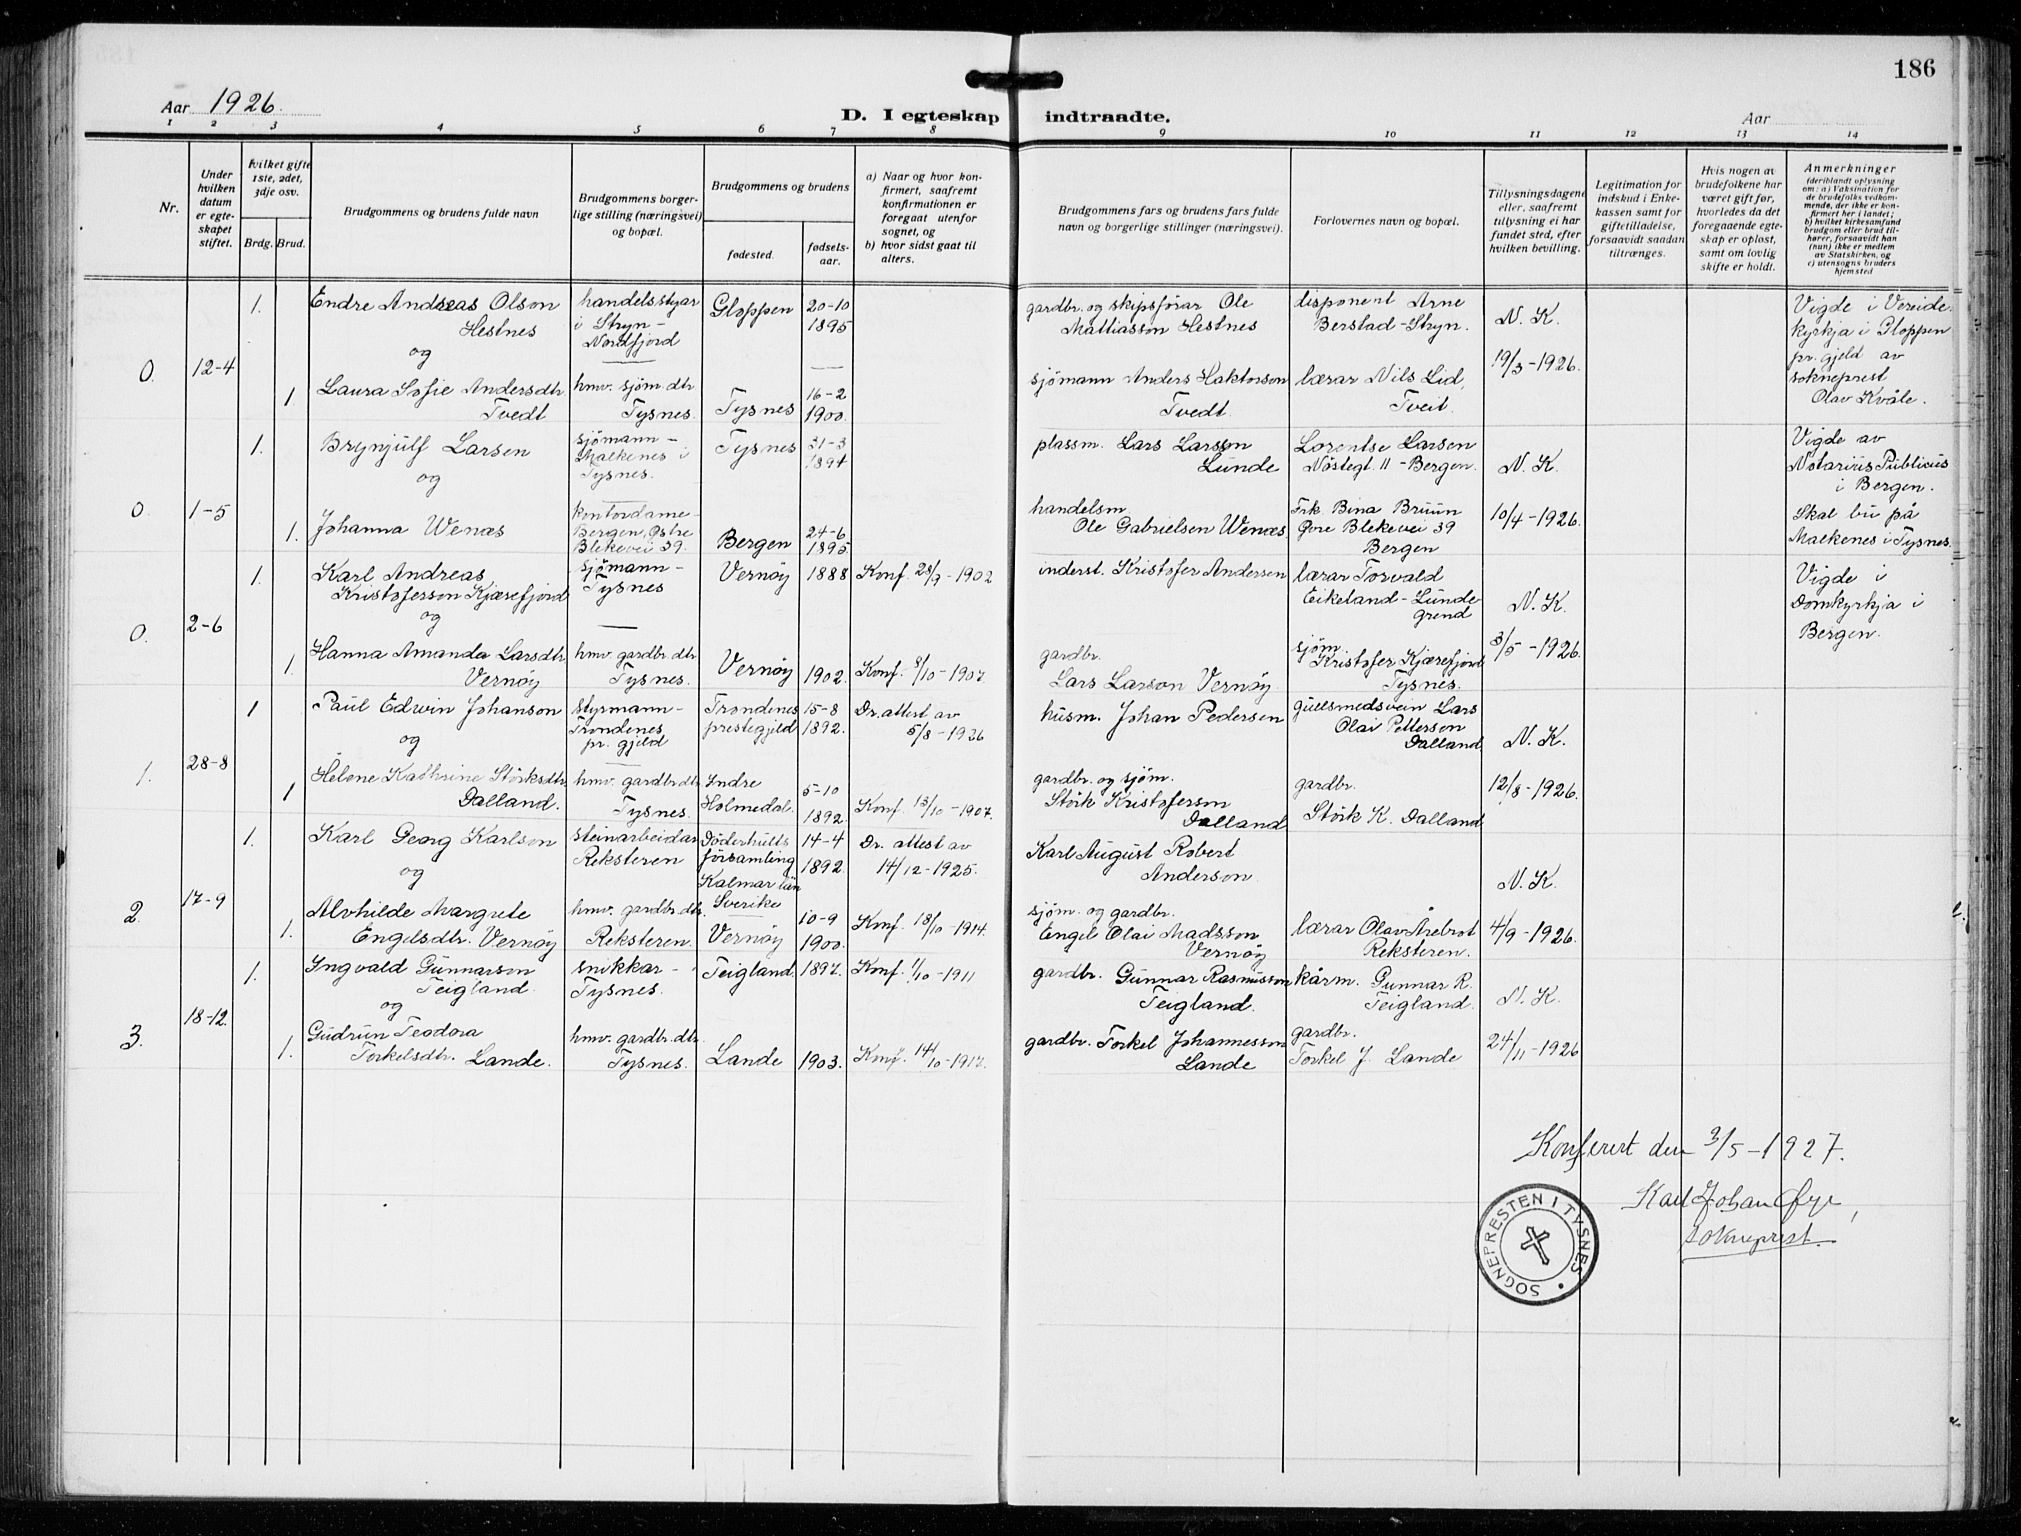 186
Aar 1926.
D. I egteskap indtraadte.
Aar
1 2 3 4 5 6 7 8 9 10 11 12 13 14
Nr.
Under hvilken datum er egteskapet stiftet.
Hvilket gifte 1ste, 2det, 3dje osv.
Brdg. Brud.
Brudgommens og brudens fulde navn
Brudgommens borgerlige stilling (næringsvei) og bopæl.
Brudgommens og brudens
fødested.
fødselsaar.
a) Naar og hvor konfirmert, saafremt konfirmationen er foregaat utenfor sognet, og
b) hvor sidst gaat til alters.
Brudgommens fars og brudens fars fulde navn og borgerlige stillinger (næringsvei).
Forlovernes navn og bopæl.
Tillysningsdagene eller, saafremt tillysning ei har fundet sted, efter hvilken bevilling.
Legitimation for indskud i Enkekassen samt for giftetilladelse, forsaavidt saadan tiltrænges.
Hvis nogen av brudefolkene har været gift før, hvorledes da det foregaaende egteskap er opløst, samt om lovlig skifte er holdt.
Anmerkninger
(deriblandt oplysning om: a) Vaksination for de brudefolks vedkommende, der ikke er konfirmert her i landet; b) hvilket kirkesamfund brudgom eller brud tilhører, forsaavidt han (hun) ikke er medlem av Statskirken, og c) utensogns bruders hjemsted
0. 12-4
1. Endre Andreas Olson Hestnes
og
handelsstyrar i Stryn - Nordfjord
Gloppen
20-10 1895
gardbr. og skipsförar Ole Mattiasson Hestnes
disponent Arne Berstad - Stryn.
N. K.
19/3-1926.
Vigde i Vereide kyrkja i Gloppen pr. gjeld av sokneprest Olav Kvåle.
1 Laura Sofie Andersdtr Tvedt
hmv. sjöm. dtr Tysnes.
Tysnes
16-2 1900.
sjömann Anders Haktorson Tvedt.
lærar Nils Lid, Tveit.
0. 1-5
1. Brynjulf Larsen
og
sjømann - Malkenes i Tysnes.
Tysnes
31-3 1894
plassm. Lars Larsson Lunde
Lorentse Larsen Nöstegt. 11 - Bergen.
N. K.
10/4-1926.
Vigde av Notarius Publicus i Bergen.
Skal bu på Malkenes i Tysnes.
1. Johanna Wenæs
kontordame - Bergen, Østre Blekevei 39.
Bergen
24-6 1895
handelsm. Ole Gabrielsen Wenæs
Frk Bina Bruun Øvre Blekevei 39 Bergen
0. 2-6
1. Karl Andreas Kristoferson Kjærefjord
og
sjømann - Tysnes
Vernöy
1888
Konf. 28/9-1902
inderst. Kristofer Andersen
lærar Torvald Eikeland - Lundegrend
N. K.
3/5-1926.
Vigde i Domkyrkja i Bergen.
1. Hanna Amanda Larsdtr Vernöy
hmv. gardbr. dtr Tysnes.
Vernöy
1902.
Konf. 8/10-1907.
gardbr. Lars Larson Vernöy
sjöm. Kristofer Kjærefjord Tysnes.
1. 28-8
1 Paul Edwin Johanson
og
styrmann - Trondenes pr. gjeld
Trondenes prestegjeld
15-8 1892.
Dr. attest av 5/8-1926
husm. Johan Pedersen
gullsmedsvein Lars Olai Pettersen Dalland
N. K.
12/8-1926.
1 Helene Kathrine Störksdtr Dalland.
hmv. gardbr. dtr Tysnes.
Yndre Holmedal.
5-10 1892.
Konf. 13/10-1907.
gardbr. og sjöm. Störk Kristoferson Dalland
gardbr. Störk K. Dalland
2. 17-9
1. Karl Georg Karlson
og
steinarbeidar Reksteren
Döderhults församling Kalmar län Sverike
14-4 1892.
Dr. attest av 14/12-1925.
Karl August Robert Anderson
N. K.
4/9-1926.
1. Alvhilde Margrete Engelsdtr. Vernöy
hmv. gardbr. dtr. Reksteren.
Vernöy
10-9 1900.
Konf. 18/10-1914.
sjöm. og gardbr. Engel Olai Madsson Vernöy
lærar Olav Årebrot Reksteren.
3. 18-12.
1. Ingvald Gunnarson Teigland.
og
snikkar - Tysnes.
Teigland.
1897.
Konf. 1/10-1911
gardbr. Gunnar Rasmusson Teigland.
kårm. Gunnar R. Teigland.
N. K.
24/11-1926
1. Gudrun Teodora Torkelsdtr. Lande.
hmv. gardbr. dtr. Tysnes.
Lande
1903.
Konf. 14/10-1917.
gardbr. Torkel Johannesson Lande
gardbr. Torkel J. Lande
Konferert den 3/5-1927.
Karl Johan Øye,
sokneprest.
SOGNEPRESTEN I TYSNES